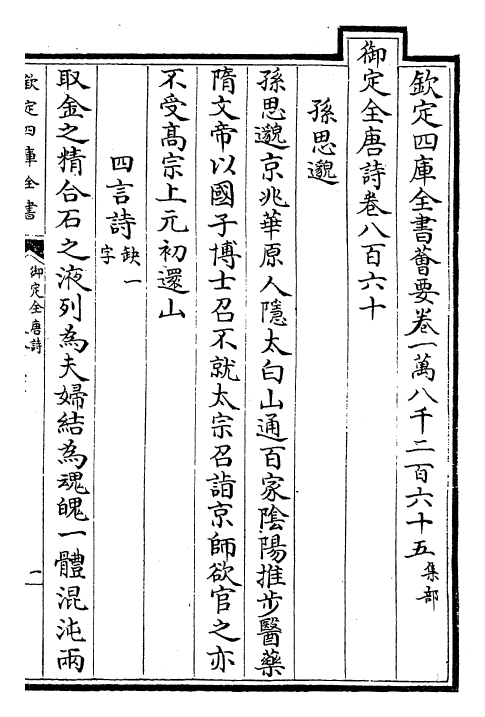 欽定四庫全書薈要卷一萬八千二百六十五集部
御定全唐詩卷八百六十
孫思邈
孫思邈京兆華原人隱太白山通百家陰陽推步醫藥
隋文帝以國子博士召不就太宗召詣京師欲官之亦
不受高宗上元初還山
四言詩缺一字
取金之精合石之液列為夫婦結為魂魄一體混沌兩
欽定四庫全書
御定全唐詩
一